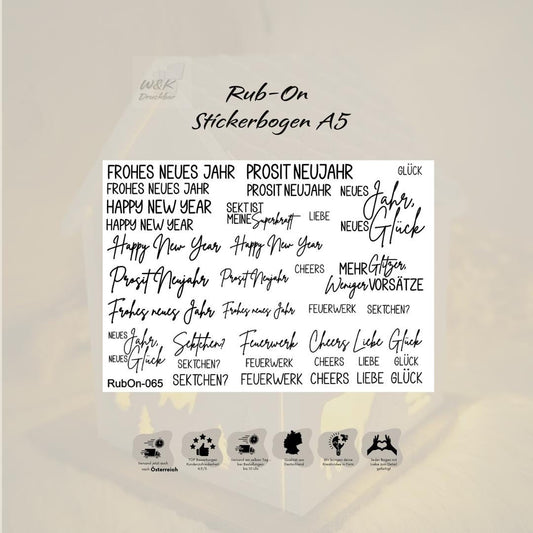 W&K
Druckbar
Rub-On
Stickerbogen A5
FROHES NEUES JAHR PROSIT NEUJAHR GLÜCK
FROHES NEUES JAHR PROSIT NEUJAHR NEUES Jahr,
HAPPY NEW YEAR SEKT IST
MEINE Superkraft LIEBE NEUES Glück
HAPPY NEW YEAR
Happy New Year Happy New Year
Prosit Neujahr Prosit Neujahr CHEERS MEHR Glitzer,
Weniger VORSÄTZE
Frohes neues Jahr Frohes neues Jahr FEUERWERK SEKTCHEN?
NEUES Jahr,
NEUES Glück Sektchen? Feuerwerk Cheers Liebe Glück
SEKTCHEN? FEUERWERK CHEERS LIEBE GLÜCK
RubOn-065 SEKTCHEN? FEUERWERK CHEERS LIEBE GLÜCK
Versand jetzt auch
nach Österreich
TOP Bewertungen
Kundenzufriedenheit
Versand am selben Tag -
bei Bestellungen
bis 10 Uhr
Qualität aus
Deutschland
Wir bringen deine
Kreativität in Form
Jeder Bogen mit
Liebe zum Detail
gefertigt